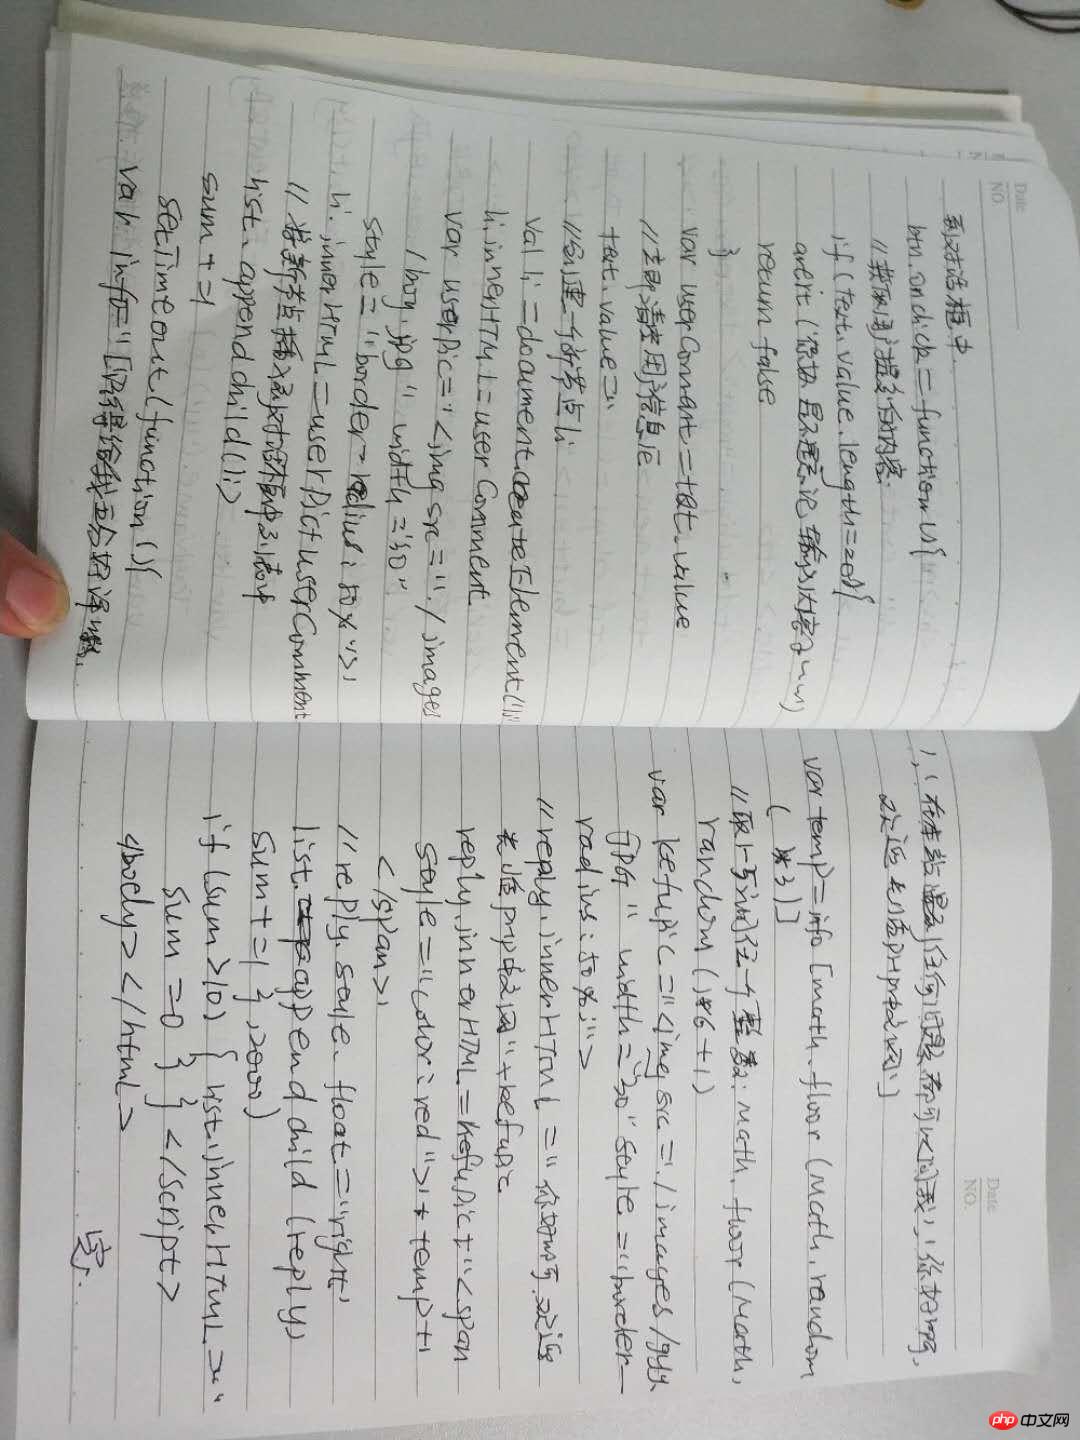 Date
NO.
到对话框中
btn.onclick = function(){
//获取用户提交的内容.
if (text.value.length==0){
return false
}
var userComment = text.value
//立即清空用户信息区
text.value=''
//创建一个新节点li
var li = document.createElement('li')
li.innerHTML = userComment
var userPic = '<img src="./images
/boy.jpg" width="30"
style="border-radius:50%">'
li.innerHTML = userPic+userComment
list.appendchild(li)
sum+=1
setTimeout(function(){
Date
NO.
var temp = info[math.floor(math.random
(*3)]
//取1-5之间的任一个整数: math.floor(math.
random()*6+1)
var kefupic = '<img src="./images/gyy.
JPG" width="30" style="border-
radius:50%;">
reply.innerHTML = kefupic+'<span
style="color:red">'+temp+'
</span>'
//reply.style.float='right'
list.appendchild(reply)
sum+=1 },2000)
if (sum>10) { list.innerHTML=''
sum=0 } } </script>
</body></html>
php中文网